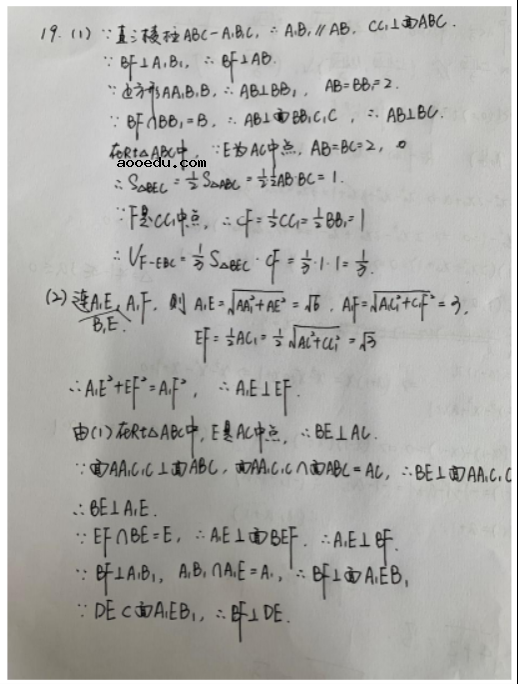 19. (1) ∵直三棱柱ABC-A₁B₁C₁ ∴A₁B₁∥AB. CC₁⊥面ABC.
∵BF⊥A₁B₁, ∴BF⊥AB.
∵正方形AA₁B₁B, ∴AB⊥BB₁, AB=BB₁=2.
∵BF∩BB₁=B, ∴AB⊥面BB₁C₁C, ∴AB⊥BC.
在Rt△ABC中, ∵E为AC中点, AB=BC=2,
aooedu.com
∴S△BEC=½S△ABC=½·½AB·BC=1.
∵F是CC₁中点, ∴CF=½CC₁=½BB₁=1
∴V_F-EBC=⅓S△BEC·CF=⅓·1·1=⅓.
(2) 连A₁E, A₁F, B₁E. 则A₁E=√(AA₁²+AE²)=√6, A₁F=√(A₁C₁²+C₁F²)=3,
EF=½AC₁=½√(AC²+CC₁²)=√3
∴A₁E²+EF²=A₁F², ∴A₁E⊥EF.
由(1)在Rt△ABC中, E是AC中点, ∴BE⊥AC.
∵面AA₁C₁C⊥面ABC, 面AA₁C₁C∩面ABC=AC, ∴BE⊥面AA₁C₁C
∴BE⊥A₁E.
∵EF∩BE=E, ∴A₁E⊥面BEF. ∴A₁E⊥BF.
∵BF⊥A₁B₁, A₁B₁∩A₁E=A₁, ∴BF⊥面A₁EB₁
∵DE⊂面A₁EB₁, ∴BF⊥DE.